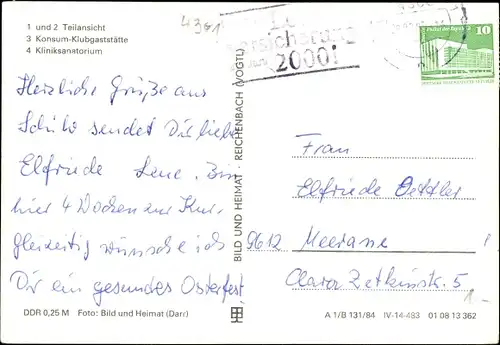 1 und 2 Teilansicht
3 Konsum-Klubgaststätte
4 Kliniksanatorium
4361
2000!
10
Herzliche Grüße aus
sendet Dir liebe
Elfriede Lene. Bin
hier 4 Wochen zur Kur.
Gleizeitig wünsche ich
Dir ein gesundes Osterfest
BILD UND HEIMAT · REICHENBACH (VOGTL)
Frau
Elfriede Oettler
9612 Meerane
Clara Zetkinstr. 5
1.-
DDR 0,25 M Foto: Bild und Heimat (Darr)
A 1/B 131/84 IV-14-483 01 08 13 362